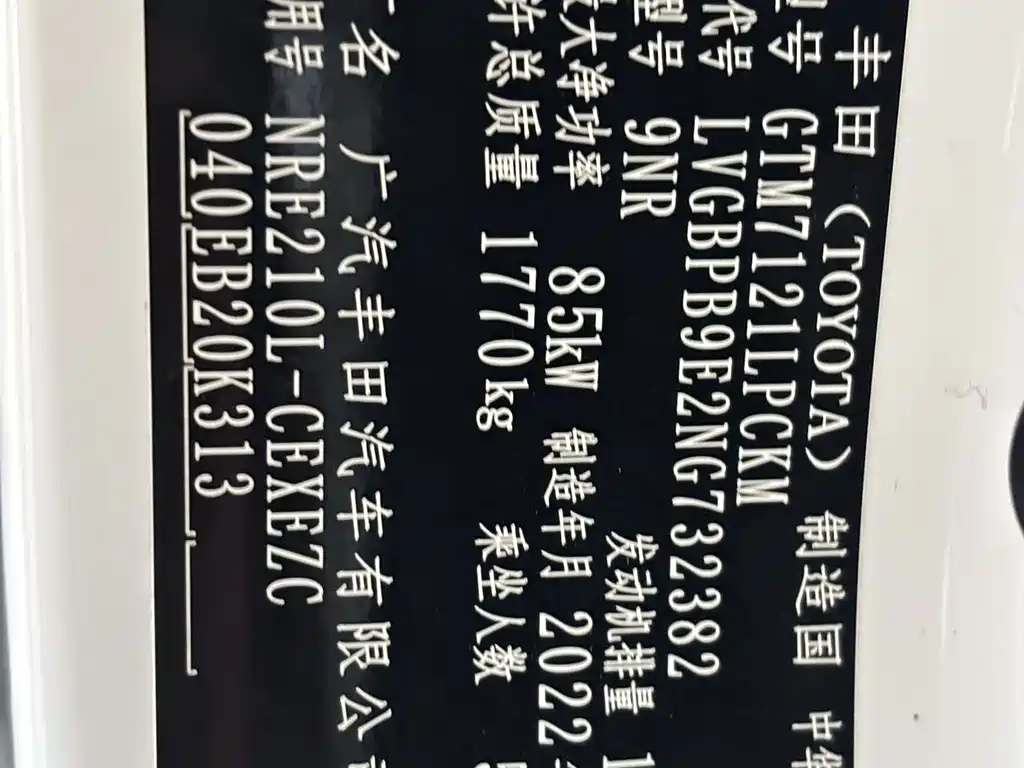 丰田 (TOYOTA) 制造国 中华
号 GTM7121LPCKM
代号 LVGBPB9E2NG732382
型号 9NR 发动机排量 1
大净功率 85kW 制造年月 2022
许总质量 1770kg 乘坐人数
名 广汽丰田汽车有限公
用号 NRE210L-CEXEZC
040EB20K313